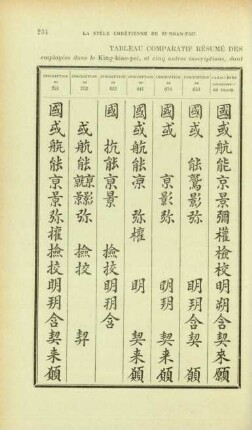 234 LA STÈLE CHRÉTIENNE DE SI-NGAN-FOU.
TABLEAU COMPARATIF RÉSUMÉ DES
employées dans le King-kiao-pei, et cinq autres inscriptions, dont
INSCRIPTION DE INSCRIPTION DE INSCRIPTION DE INSCRIPTION DE INSCRIPTION DE INSCRIPTION DE CARACTÈRES
國或航能京景弥擢撿挍明玥含契来願
或航能弥撿挍契
國杭能京景撿挍明玥含
國或航能凉弥擢明契来願
國或京影弥明玥契来願
或能影弥明玥含契来願
國或航能京景彌權檢校明朔含契來願